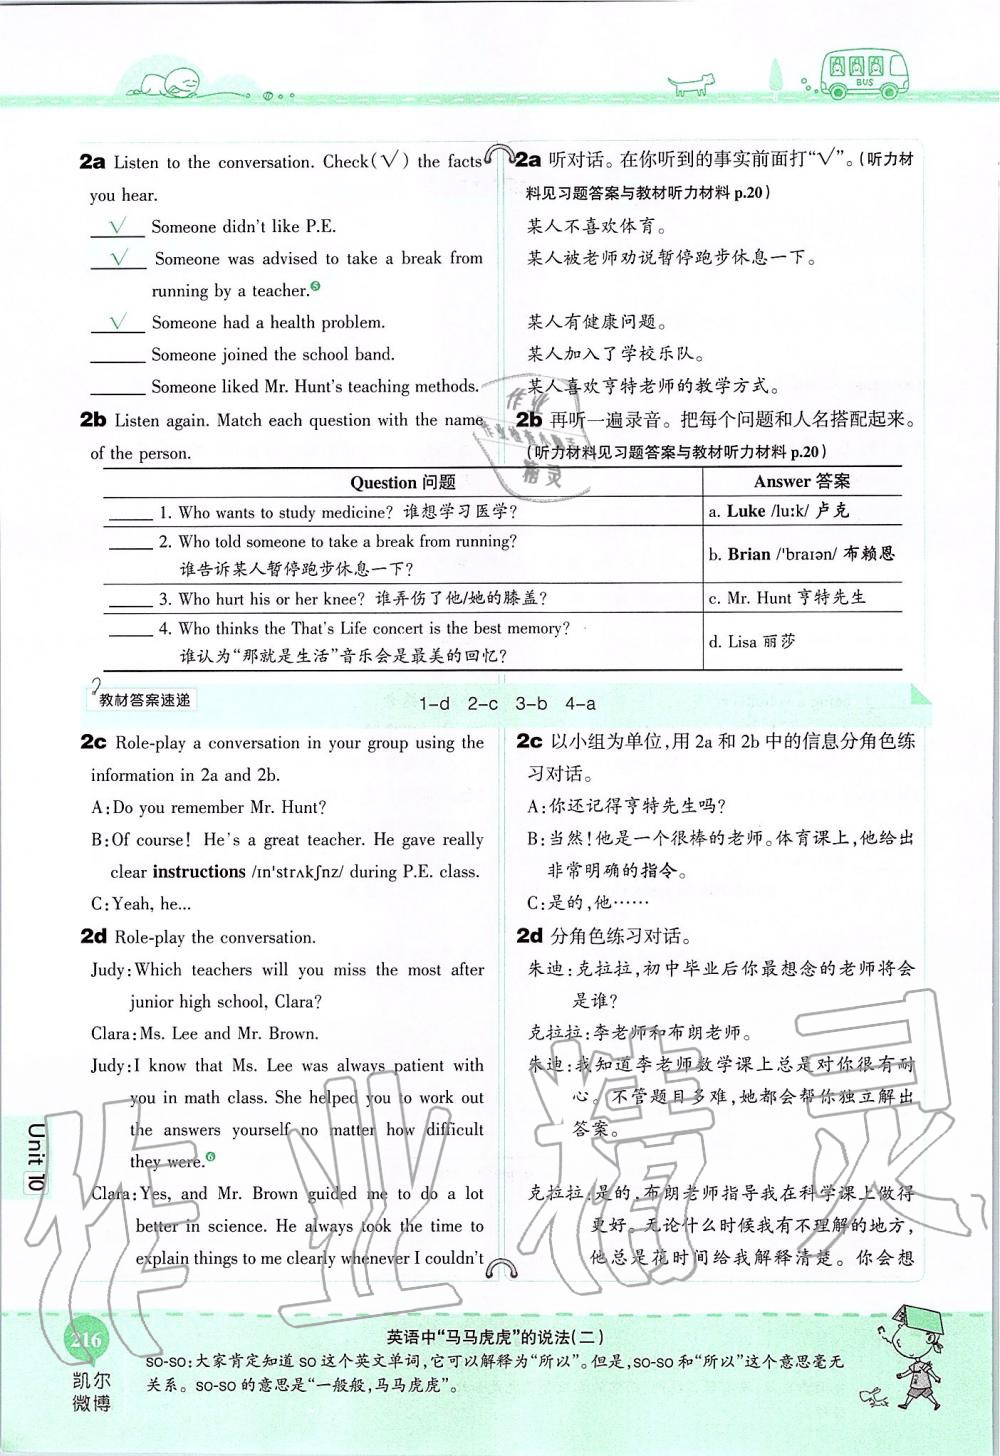 BUS
2a Listen to the conversation. Check(√) the facts
you hear.
√ Someone didn't like P.E.
√ Someone was advised to take a break from
running by a teacher.❺
√ Someone had a health problem.
Someone joined the school band.
Someone liked Mr. Hunt's teaching methods.
2b Listen again. Match each question with the name
of the person.
2a 听对话。在你听到的事实前面打“√”。(听力材
料见习题答案与教材听力材料 p.20)
某人不喜欢体育。
某人被老师劝说暂停跑步休息一下。
某人有健康问题。
某人加入了学校乐队。
某人喜欢亨特老师的教学方式。
2b 再听一遍录音。把每个问题和人名搭配起来。
(听力材料见习题答案与教材听力材料 p.20)
Question 问题 Answer 答案
1. Who wants to study medicine? 谁想学习医学?
a. Luke /luːk/ 卢克
2. Who told someone to take a break from running?
谁告诉某人暂停跑步休息一下?
b. Brian /'braɪən/ 布赖恩
3. Who hurt his or her knee? 谁弄伤了他/她的膝盖?
c. Mr. Hunt 亨特先生
4. Who thinks the That's Life concert is the best memory?
谁认为“那就是生活”音乐会是最美的回忆?
d. Lisa 丽莎
教材答案速递
1-d 2-c 3-b 4-a
2c Role-play a conversation in your group using the
information in 2a and 2b.
A:Do you remember Mr. Hunt?
B:Of course! He's a great teacher. He gave really
clear instructions /ɪn'strʌkʃnz/ during P.E. class.
C:Yeah, he...
2d Role-play the conversation.
Judy:Which teachers will you miss the most after
junior high school, Clara?
Clara:Ms. Lee and Mr. Brown.
Judy:I know that Ms. Lee was always patient with
you in math class. She helped you to work out
the answers yourself no matter how difficult
they were.❻
Clara:Yes, and Mr. Brown guided me to do a lot
better in science. He always took the time to
explain things to me clearly whenever I couldn't
2c 以小组为单位,用 2a 和 2b 中的信息分角色练
习对话。
A:你还记得亨特先生吗?
B:当然!他是一个很棒的老师。体育课上,他给出
非常明确的指令。
C:是的,他……
2d 分角色练习对话。
朱迪:克拉拉,初中毕业后你最想念的老师将会
是谁?
克拉拉:李老师和布朗老师。
朱迪:我知道李老师数学课上总是对你很有耐
心。不管题目多难,她都会帮你独立解出
答案。
克拉拉:是的,布朗老师指导我在科学课上做得
更好。无论什么时候我有不理解的地方,
他总是花时间给我解释清楚。你会想
作业精灵
Unit 10
216
凯尔
微博
英语中“马马虎虎”的说法(二)
so-so:大家肯定知道 so 这个英文单词,它可以解释为“所以”。但是,so-so 和“所以”这个意思毫无
关系。so-so 的意思是“一般般,马马虎虎”。